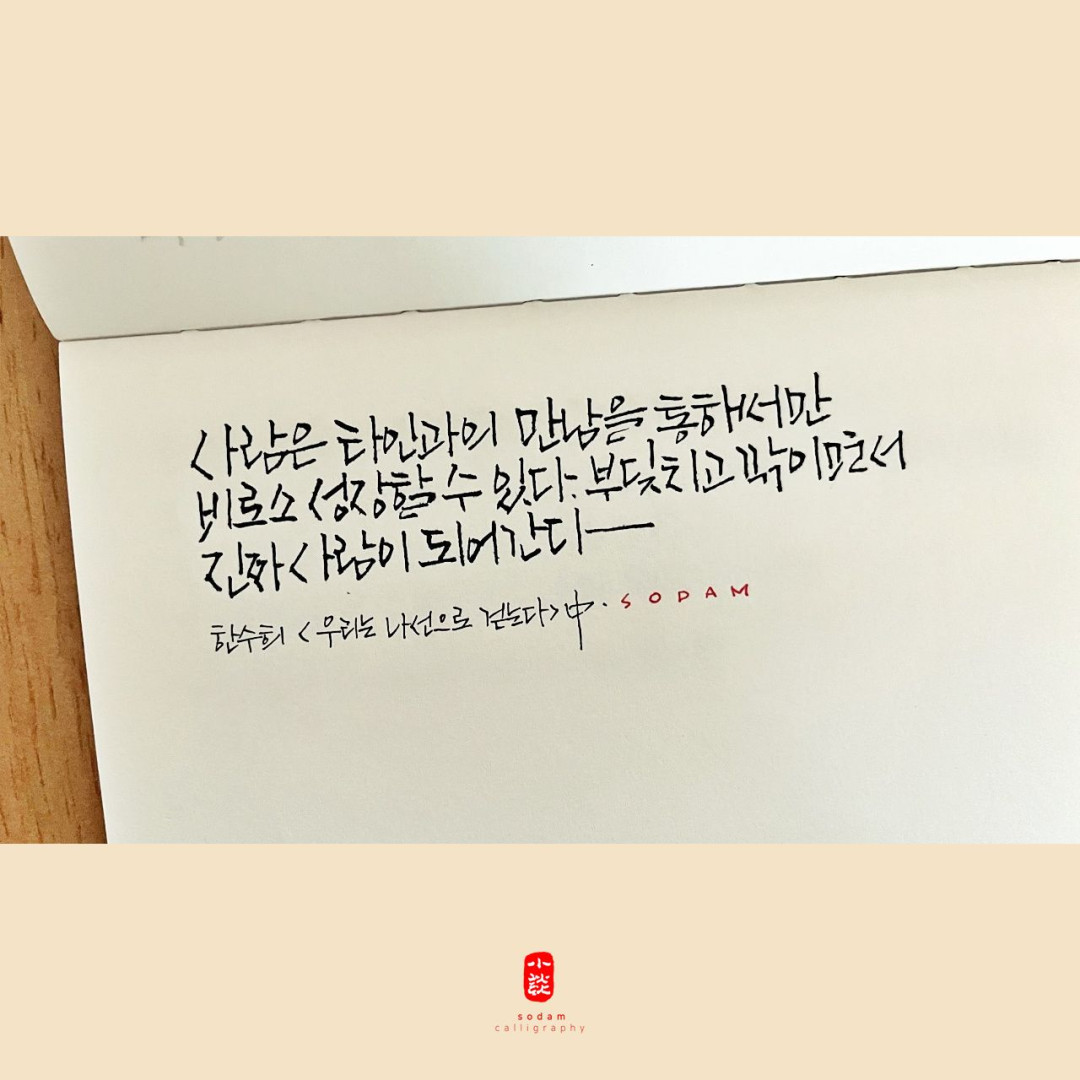 사람은 타인과의 만남을 통해서만
비로소 성장할 수 있다. 부딪치고 깎이면서
진짜 사람이 되어간다—
한수희 <우리는 나선으로 걷는다>中. SODAM
小談
sodam
calligraphy